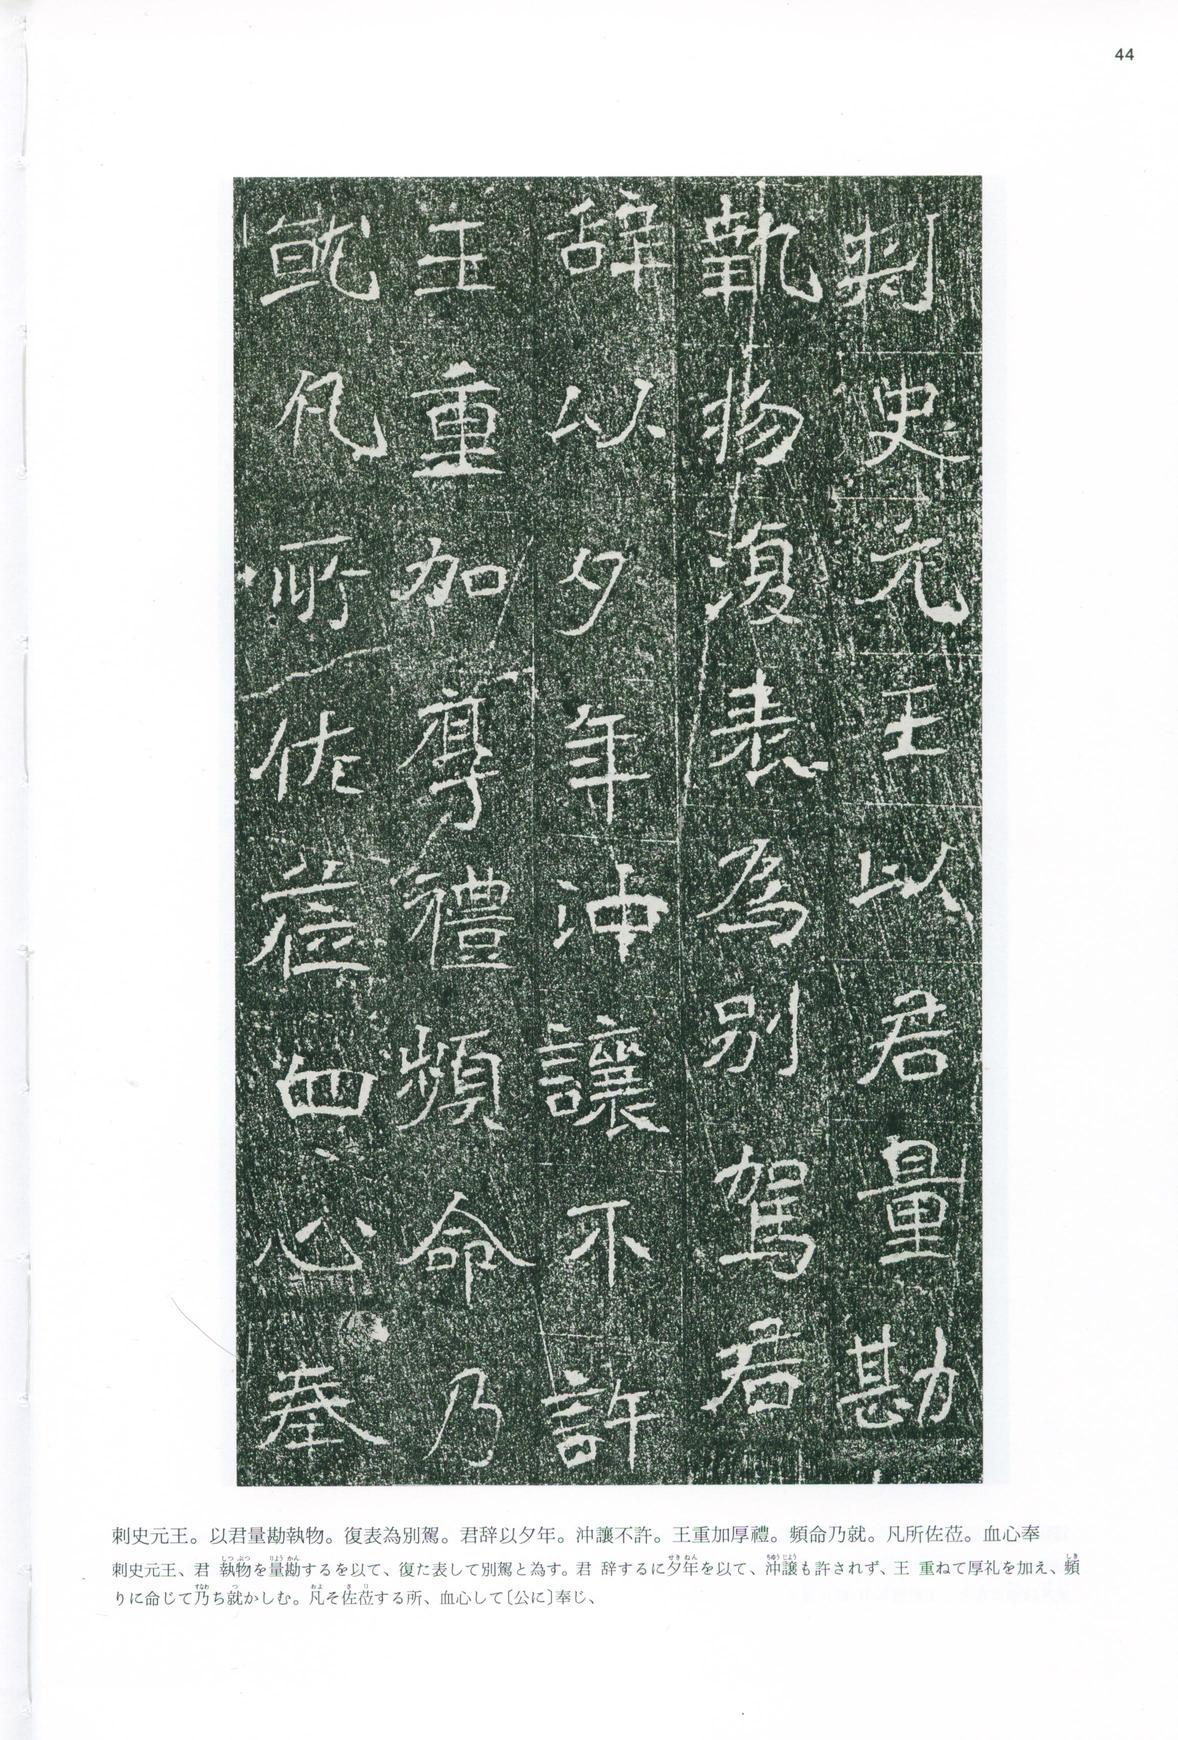 44
刾史元王以君量勘
執物復表為別駕君
辞以夕年沖讓不許
王重加厚禮頻命乃
就凡所佐莅血心奉
刺史元王。以君量勘執物。復表為別駕。君辞以夕年。沖譲不許。王重加厚禮。頻命乃就。凡所佐莅。血心奉
刺史元王、君 執物を量勘するを以て、復た表して別駕と為す。君 辞するに夕年を以て、沖譲も許されず、王 重ねて厚礼を加え、頻
りに命じて乃ち就かしむ。凡そ佐莅する所、血心して〔公に〕奉じ、